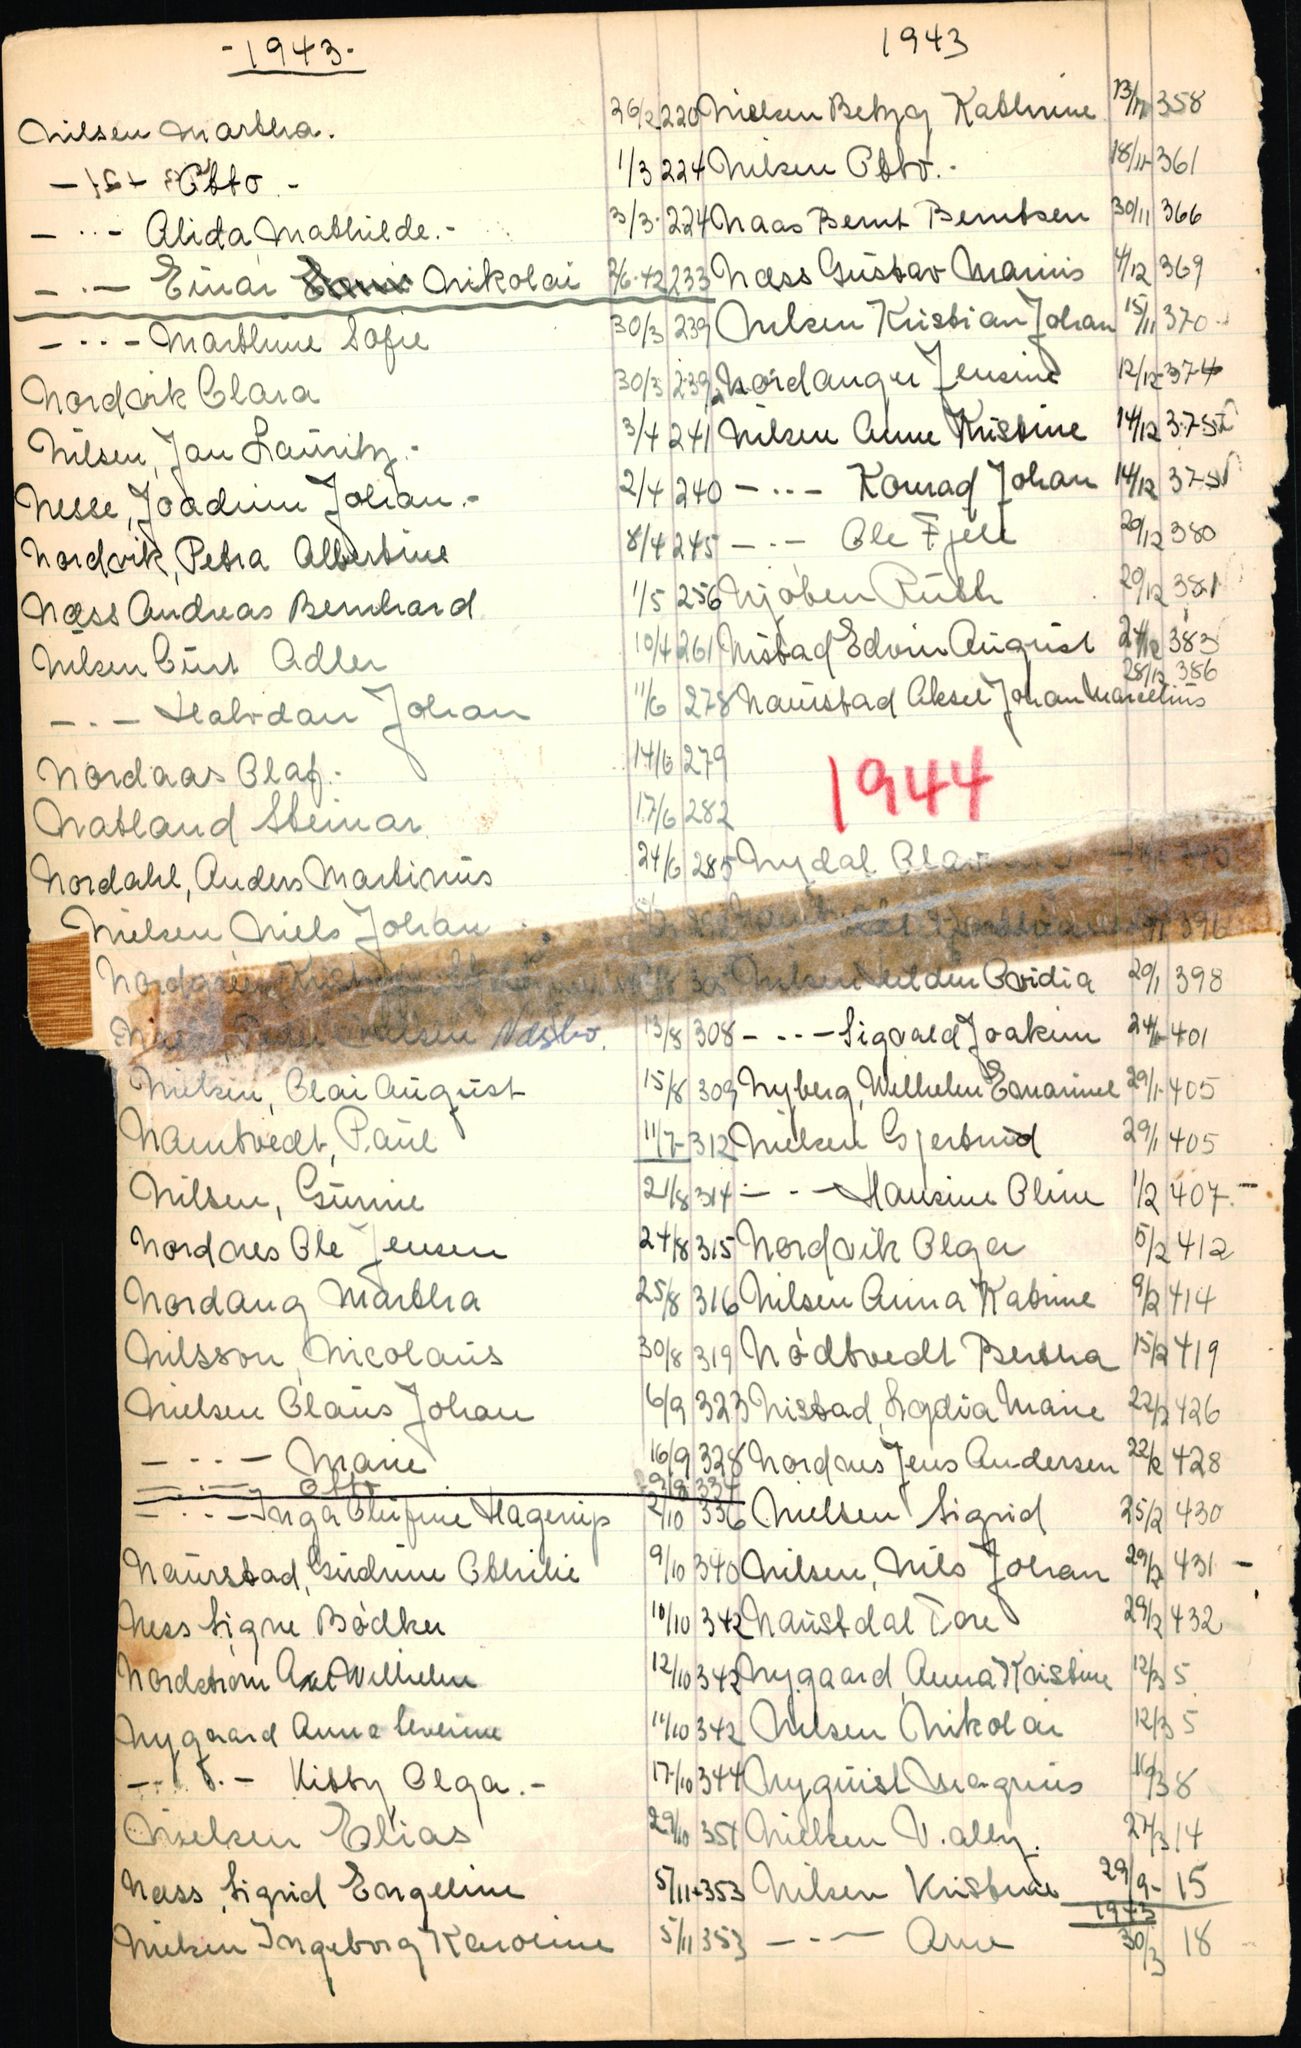 -1943-
Nilsen Martha. 26/2 220
- " - Otto - 1/3 224
- " - Alida Mathilde. - 3/3 224
- " - Einar Nikolai 2/6-42 233
- " - Marthine Sofie 30/3 239
Nordvik Clara 30/3 239
Nilsen, Jan Lauritz - 3/4 241
Nesse, Joachim Johan. - 2/4 240
Nordvik, Petra Albertine 8/4 245
Næss Andreas Bernhard 1/5 256
Nilsen Curt Adler 10/4 261
- " - Halvdan Johan 11/6 278
Nordaas Olaf. 14/6 279
Natland Steinar 17/6 282
Nordahl, Anders Martinius 24/6 285
Nielsen Niels Johan
Nordgreen
Nilsen Næsbø. 13/8 308
Nielsen, Olai August 15/8 309
Namtvedt, Paul 11/7- 312
Nilsen, Gunnie 21/8 314
Nordnes Ole Jensen 24/8 315
Nordang Martha 25/8 316
Nilsson, Nicolaus 30/8 319
Nielsen Claus Johan 6/9 323
- " - Marie 16/9 328
- " - Otto 334
- " - Inga Hagerup 2/10 336
Naustad, Gudrun Othilie 9/10 340
Ness Signe Bødker 10/10 342
Nordstrøm Axel Wilhelm 12/10 342
Nygaard Anna Severine 11/10 342
- " - Kitty Olga. - 17/10 344
Nielsen Elias 29/10 351
Næss, Sigrid Engeline 5/11 353
Nielsen Ingeborg Karoline 5/11 353
1943
Nielsen Betzy Kathrine 13/11 358
Nilsen Otto. - 18/11 361
Naas Bernt Berntsen 30/11 366
Næss Gustav Marius 4/12 369
Nilsen Kristian Johan 15/11 370
Nordanger Jensine 12/12 374
Nilsen Anne Kristine 14/12 375
- " - Konrad Johan 14/12 375
- " - Ole Fjell 20/12 380
Njøben Ruth 20/12 381
Nistad Edvin August 24/12 383
28/12 386
Naustad Aksel Johan Marcelius
1944
Nydal Olav 395
396
Nilsen Ovidia 20/1 398
- " - Sigvald Joakim 24/1 401
Nyberg, Wilhelm Emanuel 29/1 405
Nielsen Gjertrud 29/1 405
- " - Hansine Oline 1/2 407. -
Nordvik Olga 5/2 412
Nilsen Anna Katrine 9/2 414
Nødtvedt Bertha 15/2 419
Nistad, Lydia Marie 22/2 426
Nordnes Jens Andersen 22/2 428
Nielsen Sigrid 25/2 430
Nilsen, Nils Johan 29/2 431 -
Naustdal Tore 29/2 432
Nygaard, Anna Kristine 12/3 5
Nilsen Nikolai 12/3 5
Nyquist Magnus 16/3 8
Nielsen Valley. 27/3 14
Nilsen Kristine 29/9- 15
1943
- " - Arne 30/3 18